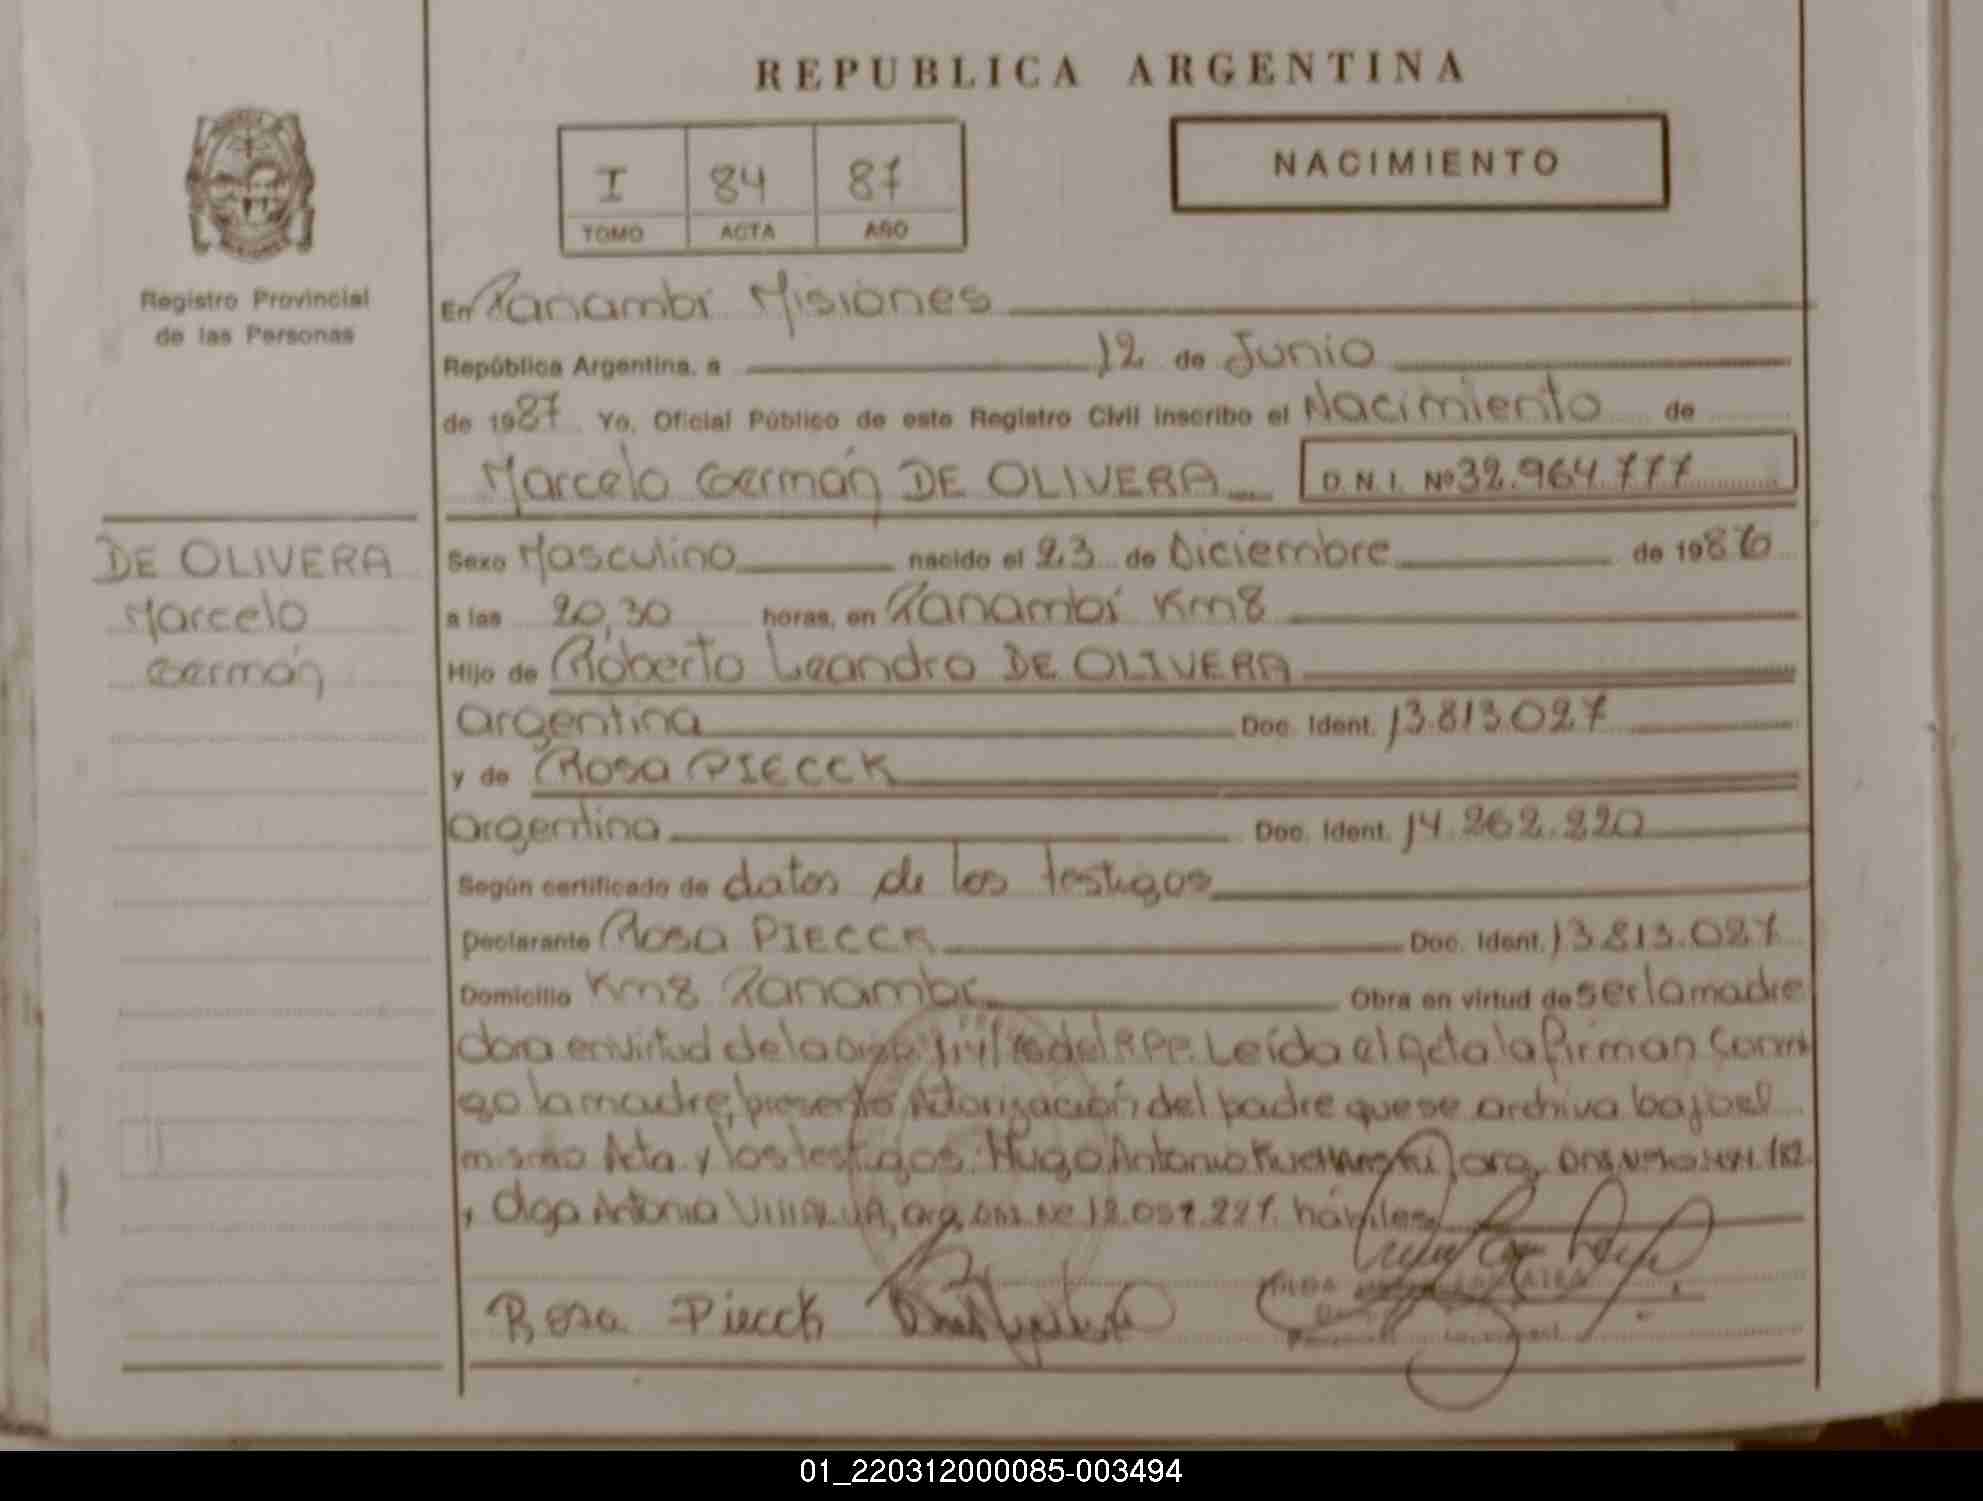 REPUBLICA ARGENTINA
I 84 87
TOMO ACTA AÑO
NACIMIENTO
Registro Provincial
de las Personas
En Panambí Misiones
República Argentina, a 12 de Junio
de 1987 Yo, Oficial Público de este Registro Civil inscribo el Nacimiento de
Marcelo Germán DE OLIVERA D. N. I. Nº 32.964.777
DE OLIVERA
Marcelo
Germán
Sexo Masculino nacido el 23 de Diciembre de 1986
a las 20,30 horas, en Panambí Km8
Hijo de Roberto Leandro DE OLIVERA
argentina Doc. Ident. 13.813.027
y de Rosa PIECCK
argentina Doc. Ident. 14.262.220
Según certificado de datos de los testigos
Declarante Rosa PIECCK Doc. Ident. 13.813.027
Domicilio Km8 Panambí Obra en virtud de ser la madre
en virtud de la del R.P.P. Leída el Acta la firman conmi
go la madre, presento Autorización del padre que se archiva bajo el
mismo Acta y los testigos: Hugo Antonio arg.
y Olga Antonia arg. DNI. Nº 12.059.227. hábiles
Rosa Piecck
01_220312000085-003494